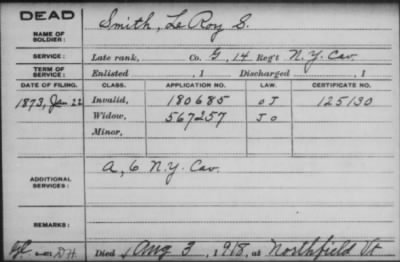 DEAD
NAME OF SOLDIER: Smith, Le Roy S.
SERVICE: Late rank, Co. G, 14 Reg't N.Y. Cav.
TERM OF SERVICE: Enlisted , 1 Discharged , 1
DATE OF FILING. CLASS. APPLICATION NO. LAW. CERTIFICATE NO.
1873, Jan 22 Invalid, 180685 O J 125130
Widow, 567257 J O
Minor,
ADDITIONAL SERVICES: A, 6 N.Y. Cav.
REMARKS:
Died Aug 3, 1918, at Northfield Vt